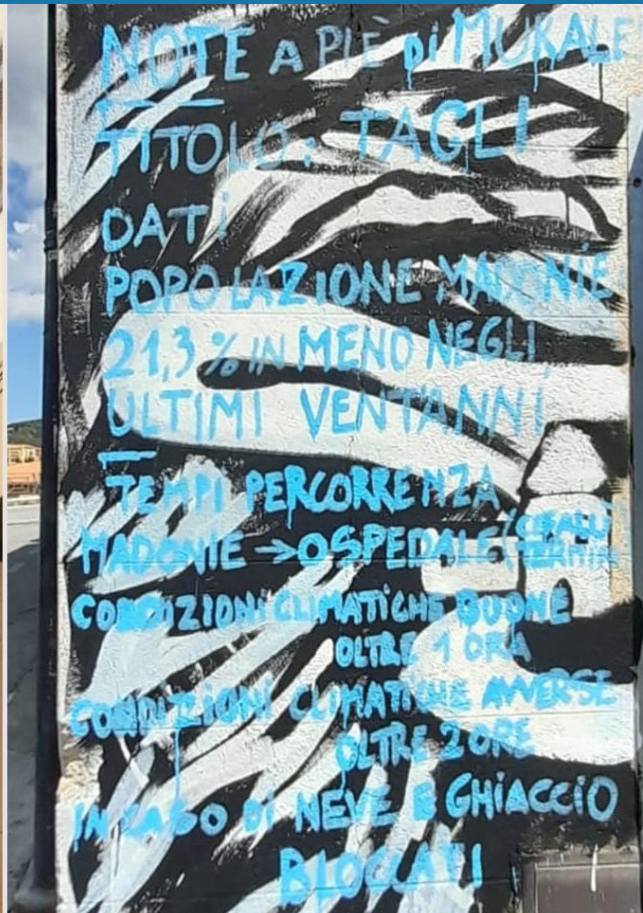 NOTE A PIÈ Di MURALE
TITOLO: TAGLI
DATI
POPOLAZIONE MADONIE
21,3% IN MENO NEGLI
ULTIMI VENT'ANNI
TEMPI PERCORRENZA
MADONIE → OSPEDALE (CEFALÙ
CONDIZIONI CLIMATICHE BUONE
OLTRE 1 ORA
CONDIZIONI CLIMATICHE AVVERSE
OLTRE 2 ORE
IN CASO DI NEVE E GHIACCIO
BLOCCATI